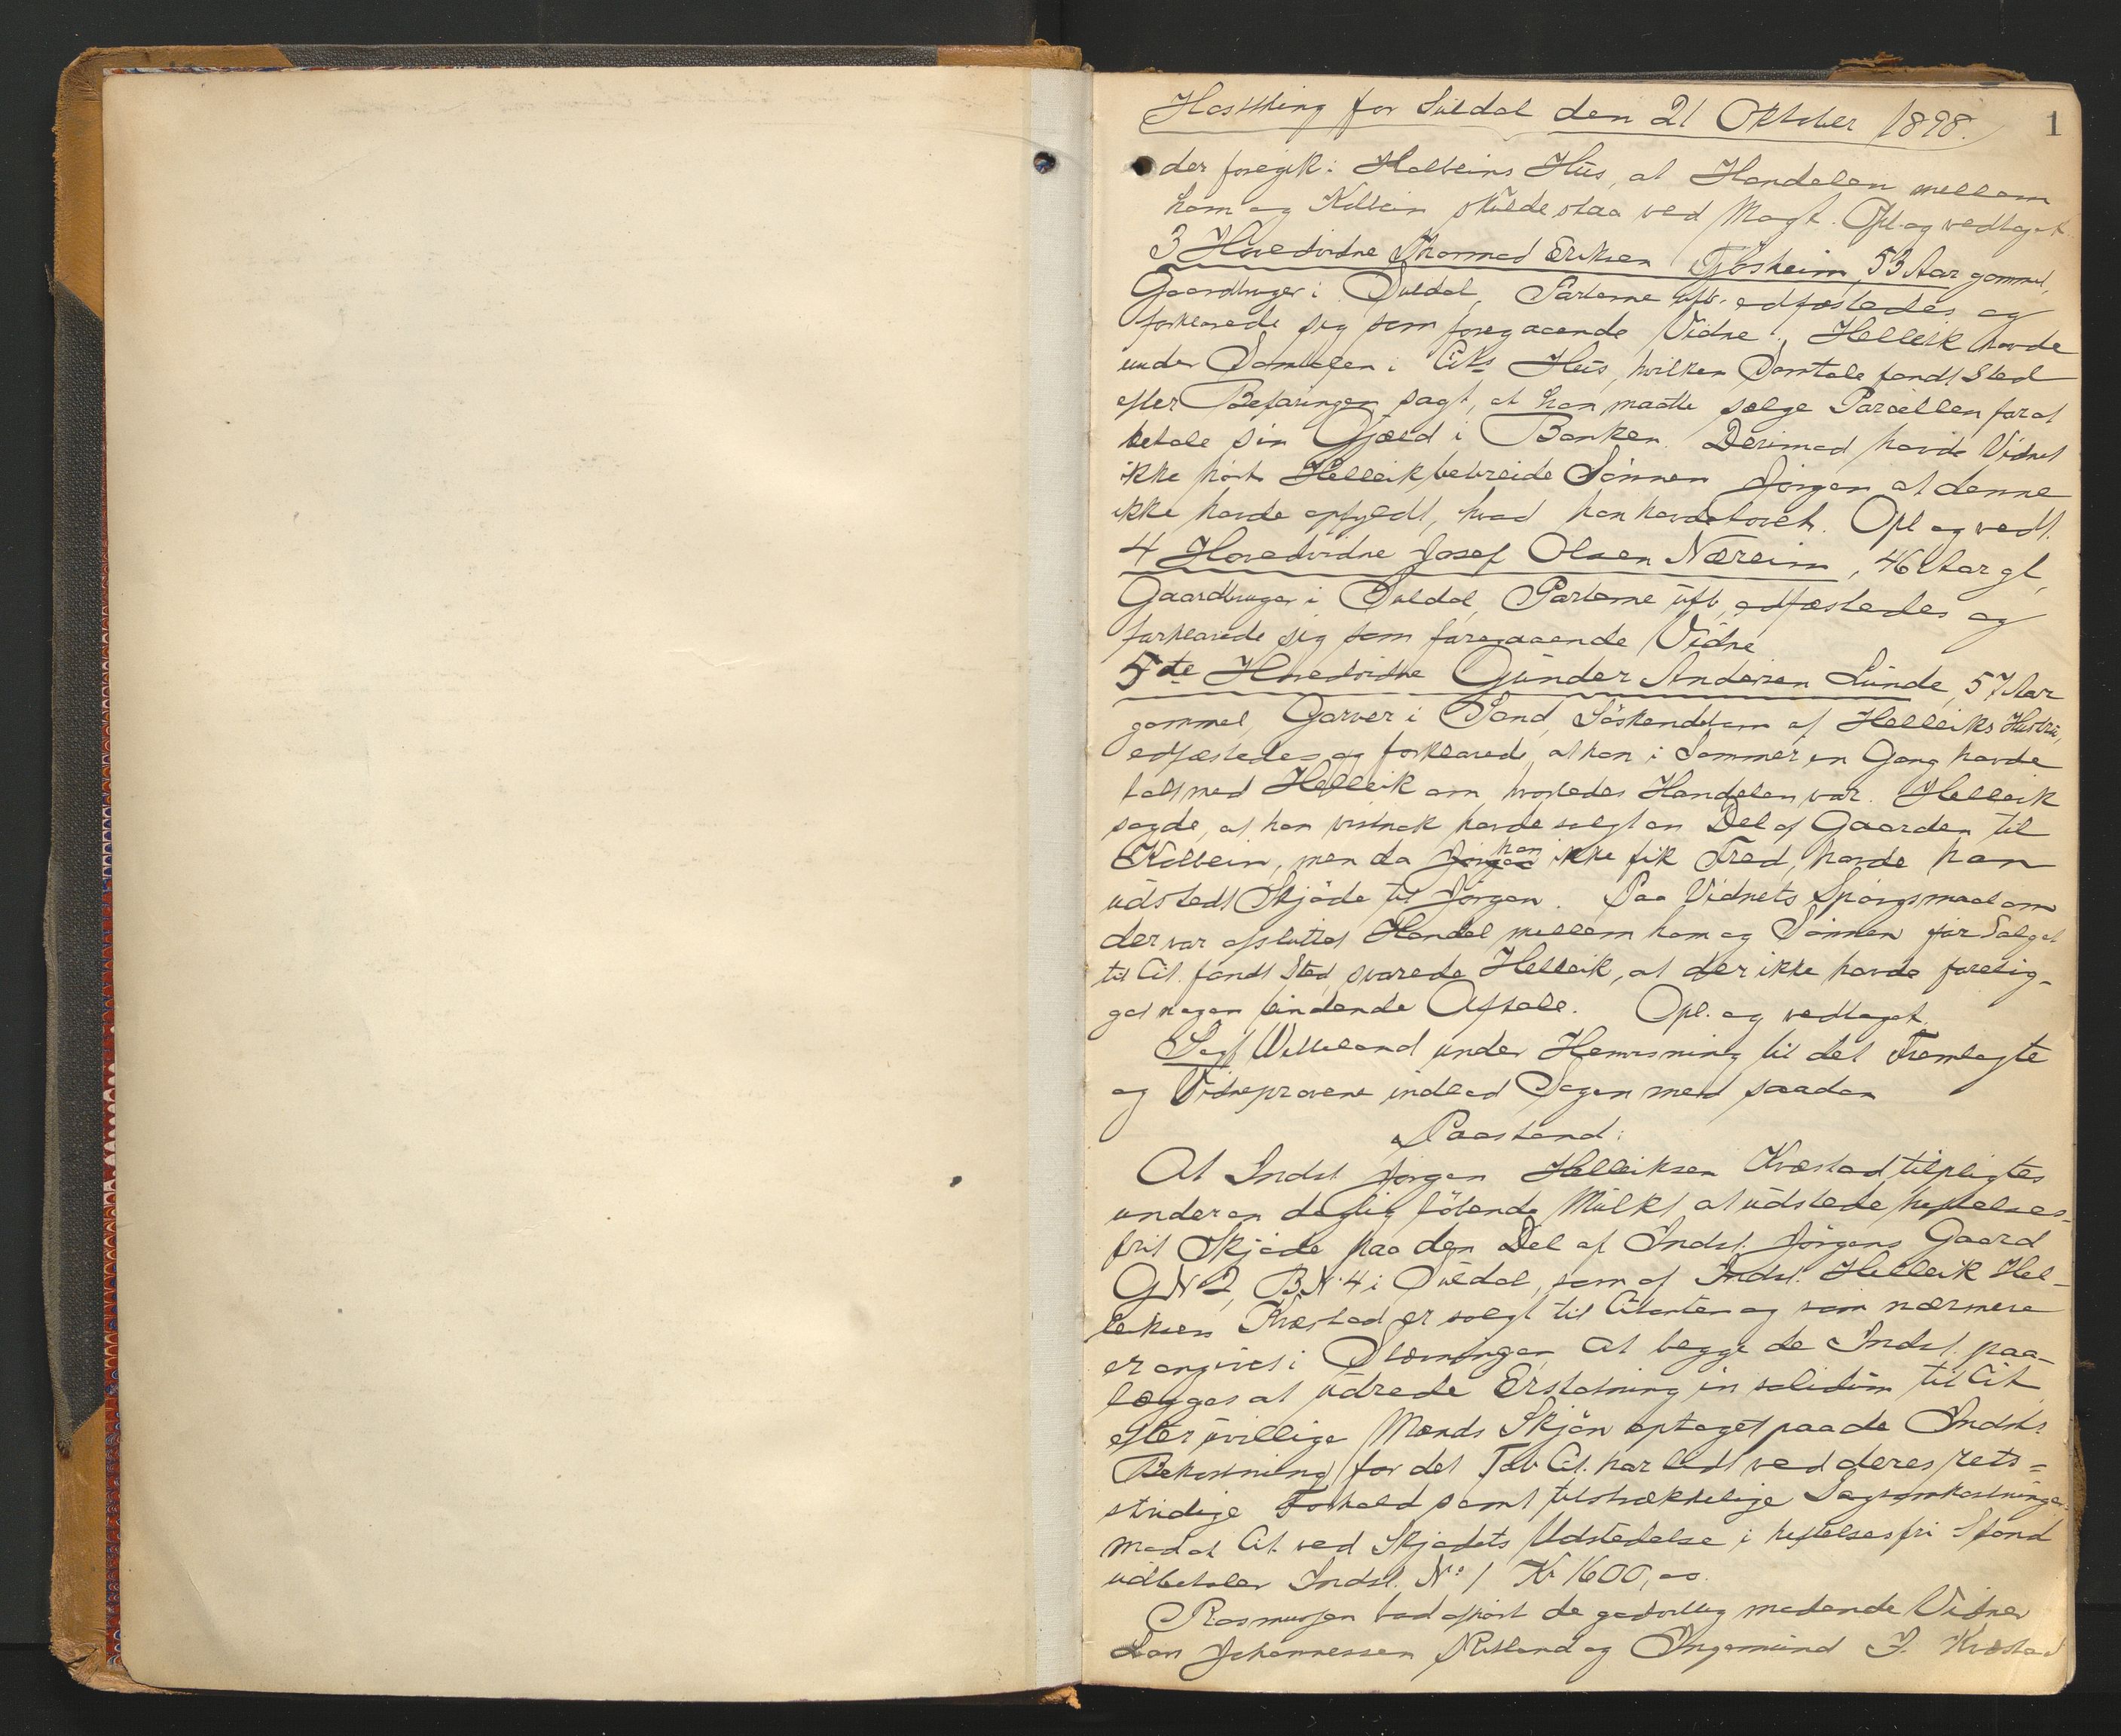 Høstthing for Suldal den 21 Oktober 1898.
1
der foregik i Kolbeins Hus, at Handelen mellem
ham og Kolbein skulde staa ved Magt. Opl. og vedtaget.
3 Hovedvidne Thormod Eriksen Fjösheim, 53 Aar gammel,
Gaardbruger i Suldal, Parterne uft. edfæstedes og
forklarede sig som foregaaende Vidne. Helleik havde
under Samtalen i Cits Hus, hvilken Samtale fandt Sted
efter Befaringen sagt, at han maatte sælge Parcellen for at
betale sin Gjæld i Banken. Derimod havde Vidnet
ikke hört Helleik bebreide Sönnen Jörgen at denne
ikke havde opfyldt, hvad han havde lovet. Opl og vedt.
4 Hovedvidne Josef Olsen Næreim, 46 Aar gl,
Gaardbruger i Suldal, Parterne uft, edfæstedes og
forklarede sig som foregaaende Vidne
5te Hovedvidne Gunder Andersen Lunde, 57 Aar
gammel, Garver i Sand, Söskendebarn af Helleiks Hustru,
edfæstedes og forklarede, at han i Sommer en Gang havde
talt med Helleik om hvorledes Handelen var. Helleik
sagde, at han vistnok havde solgt en Del af Gaarden til
Kolbein, men da Jörgen han ikke fik Fred, havde han
udstedt Skjöde til Jörgen. Paa Vidnets Spörgsmaal om
der var afsluttet Handel mellem ham og Sönnen för Salget
til Cit. fandt Sted, svarede Helleik, at der ikke havde forelig-
get nogen bindende Aftale. Opl. og vedtaget.
Sagf Willeland under Henvisning til det Fremlagte
og Vidneprovene indlod Sagen med saadan
Paastand:
At Indst Jörgen Helleiksen Kvæstad tilpligtes
under en daglig löbende Mulkt at udstede heftelses-
frit Skjöde paa den Del af Indst. Jörgens Gaard
GN 2, BN. 4 i Suldal, som af Indst. Helleik Hel-
leiksen Kvæstad er solgt til Citanten og som nærmere
er angivet i Stævningen, At begge de Indst. paa-
lægges at udrede Erstatning in solidum til Cit.
efter uvillige Mænds Skjön optaget paa de Indsts.
Bekostning for det Tab Cit. har lidt ved deres rets-
stridige Forhold samt tilstrækkelige Sagsomkostninger
mod at Cit. ved Skjödets Udstedelse i heftelsesfri Stand
udbetaler Indst. No 1 Kr 1600,00.
Rasmussen bad afhört de godvillig mødende Vidner
Lars Johannessen Ritland og Ingemund J. Kvæstad